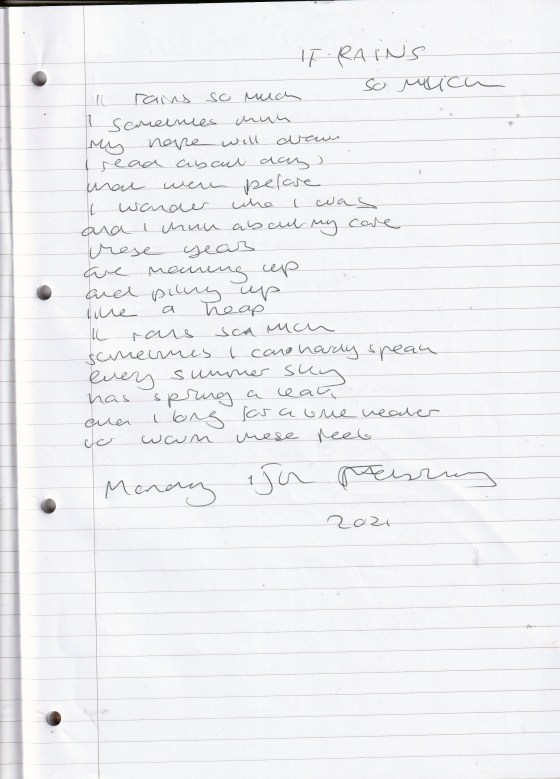 IT RAINS
SO MUCH
it rains so much
I sometimes think
my hope will drown
I read about days
that were before
I wonder who I was
and I think about my care
these years
are mounting up
and piling up
like a heap
it rains so much
sometimes I can hardly speak
every summer sky
has spring a leak
and I long for a love
to warm these feet
Monday 15th February
2021